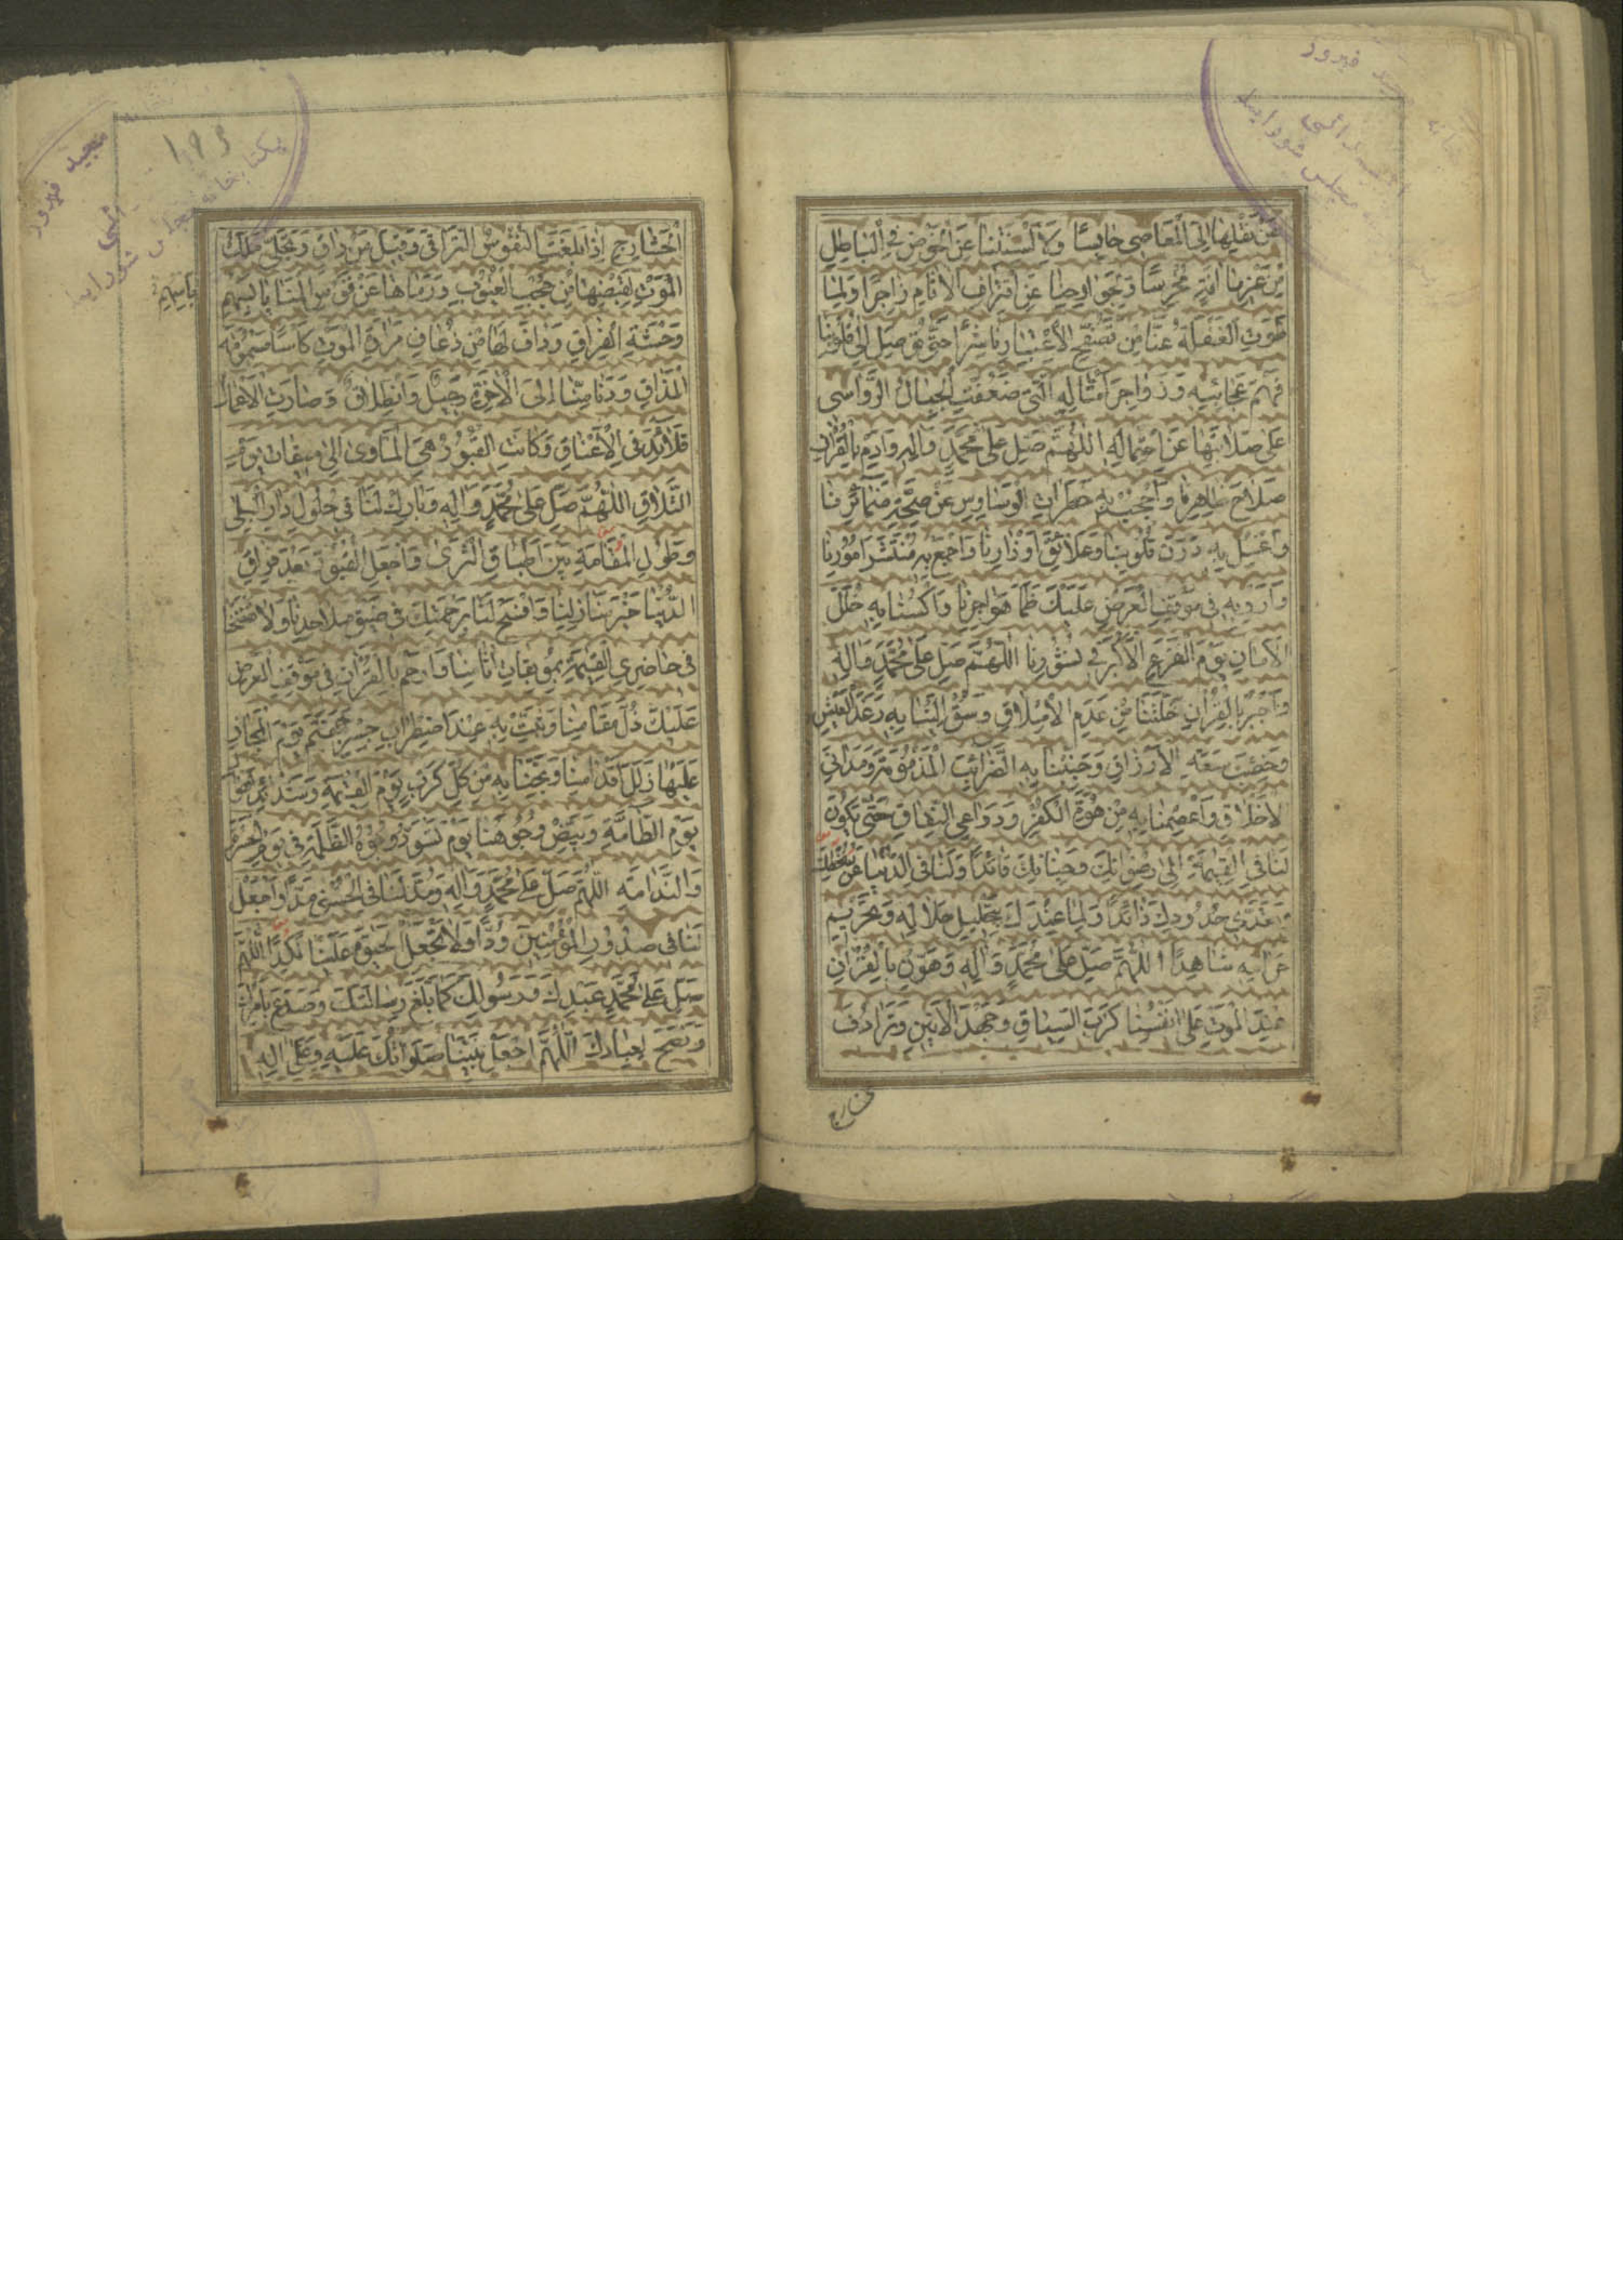 عَنْ نَقْلِهَا إِلَى الْمَعَاصِي حَابِسًا وَلِأَلْسِنَتِنَا عَنِ الْخَوْضِ فِي الْبَاطِلِ
مِنْ غَيْرِ مَا آفَةٍ مُخْرِسًا وَلِجَوَارِحِنَا عَنِ اقْتِرَافِ الْآثَامِ زَاجِرًا وَلِمَا
طَوَتِ الْغَفْلَةُ عَنَّا مِنْ تَصَفُّحِ الْاعْتِبَارِ نَاشِرًا حَتَّى تُوصِلَ إِلَى قُلُوبِنَا
فَهْمَ عَجَائِبِهِ وَزَوَاجِرَ أَمْثَالِهِ الَّتِي ضَعُفَتِ الْجِبَالُ الرَّوَاسِي
عَلَى صَلَابَتِهَا عَنِ احْتِمَالِهِ اللّٰهُمَّ صَلِّ عَلَى مُحَمَّدٍ وَالِهِ وَادِمْ بِالْقُرْانِ
صَلَاحَ ظَاهِرِنَا وَاحْجُبْ بِهِ خَطَرَاتِ الْوَسَاوِسِ عَنْ صِحَّةِ ضَمَائِرِنَا
وَاغْسِلْ بِهِ دَرَنَ قُلُوبِنَا وَعَلَائِقَ اَوْزَارِنَا وَاجْمَعْ بِهِ مُنْتَشَرَ اُمُورِنَا
وَاَرْوِ بِهِ فِي مَوْقِفِ الْعَرْضِ عَلَيْكَ ظَمَأَ هَوَاجِرِنَا وَاكْسُنَا بِهِ حُلَلَ
الْاَمَانِ يَوْمَ الْفَزَعِ الْاَكْبَرِ فِي نُشُورِنَا اللّٰهُمَّ صَلِّ عَلَى مُحَمَّدٍ وَالِهِ
وَاجْبُرْ بِالْقُرْانِ خَلَّتَنَا مِنْ عَدَمِ الْاِمْلَاقِ وَسُقْ اِلَيْنَا بِهِ رَغَدَ الْعَيْشِ
وَخِصْبَ سَعَةِ الْاَرْزَاقِ وَجَنِّبْنَا بِهِ الضَّرَائِبَ الْمَذْمُومَةَ وَمَدَانِيَ
الْاَخْلَاقِ وَاعْصِمْنَا بِهِ مِنْ هُوَّةِ الْكُفْرِ وَدَوَاعِي النِّفَاقِ حَتَّى يَكُونَ
لَنَا فِي الْقِيٰمَةِ اِلَى رِضْوَانِكَ وَجِنَانِكَ قَائِدًا وَلَنَا فِي الدُّنْيَا عَنْ سُخْطِكَ
وَتَعَدِّي حُدُودِكَ ذَائِدًا وَلِمَا عِنْدَكَ بِتَحْلِيلِ حَلَالِهِ وَتَحْرِيمِ
حَرَامِهِ شَاهِدًا اللّٰهُمَّ صَلِّ عَلَى مُحَمَّدٍ وَالِهِ وَهَوِّنْ بِالْقُرْانِ
عِنْدَ الْمَوْتِ عَلَى اَنْفُسِنَا كَرْبَ السِّيَاقِ وَجَهْدَ الْاَنِينِ وَتَرَادُفَ
الْحَشَارِجِ اِذَا بَلَغَتِ النُّفُوسُ التَّرَاقِيَ وَقِيلَ مَنْ رَاقٍ وَتَجَلَّى مَلَكُ
الْمَوْتِ لِقَبْضِهَا مِنْ حُجُبِ الْغُيُوبِ وَرَمَاهَا عَنْ قَوْسِ الْمَنَايَا بِاَسْهُمِ
بِاَسْهُمِ
وَحْشَةِ الْفِرَاقِ وَدَافَ لَهَا مِنْ ذُعَافِ مَرَارَةِ الْمَوْتِ كَأْسًا مَسْمُومَةَ
الْمَذَاقِ وَدَنَا مِنَّا اِلَى الْاٰخِرَةِ رَحِيلٌ وَانْطِلَاقٌ وَصَارَتِ الْاَعْمَالُ
قَلَائِدَ فِي الْاَعْنَاقِ وَكَانَتِ الْقُبُورُ هِيَ الْمَأْوَى اِلَى مِيقَاتِ يَوْمِ
التَّلَاقِ اللّٰهُمَّ صَلِّ عَلَى مُحَمَّدٍ وَالِهِ وَبَارِكْ لَنَا فِي حُلُولِ دَارِ الْبِلَى
وَطُولِ الْمُقَامَةِ بَيْنَ اَطْبَاقِ الثَّرَى وَاجْعَلِ الْقُبُورَ بَعْدَ فِرَاقِ
الدُّنْيَا خَيْرَ مَنَازِلِنَا وَافْسَحْ لَنَا بِرَحْمَتِكَ فِي ضِيقِ مَلَاحِدِنَا وَلَا تَفْضَحْنَا
فِي حَاضِرِي الْقِيٰمَةِ بِمُوبِقَاتِ اٰثَامِنَا وَارْحَمْ بِالْقُرْانِ فِي مَوْقِفِ الْعَرْضِ
عَلَيْكَ ذُلَّ مَقَامِنَا وَثَبِّتْ بِهِ عِنْدَ اضْطِرَابِ جِسْرِ جَهَنَّمَ يَوْمَ الْمَجَازِ
عَلَيْهَا زَلَلَ اَقْدَامِنَا وَنَجِّنَا بِهِ مِنْ كُلِّ كَرْبٍ يَوْمَ الْقِيٰمَةِ وَشَدَائِدِ اَهْوَالِ
يَوْمِ الطَّامَّةِ وَبَيِّضْ وُجُوهَنَا يَوْمَ تَسْوَدُّ وُجُوهُ الظَّلَمَةِ فِي يَوْمِ الْحَسْرَةِ
وَالنَّدَامَةِ اللّٰهُمَّ صَلِّ عَلَى مُحَمَّدٍ وَالِهِ وَاجْعَلْ
لَنَا فِي صُدُورِ الْمُؤْمِنِينَ وُدًّا وَلَا تَجْعَلِ الْحَيٰوةَ عَلَيْنَا نَكَدًا اللّٰهُمَّ
صَلِّ عَلَى مُحَمَّدٍ عَبْدِكَ وَرَسُولِكَ كَمَا بَلَّغَ رِسَالَتَكَ وَصَدَعَ بِاَمْرِكَ
وَنَصَحَ لِعِبَادِكَ اللّٰهُمَّ اجْعَلْ نَبِيَّنَا صَلَوَاتُكَ عَلَيْهِ وَعَلَى الِهِ